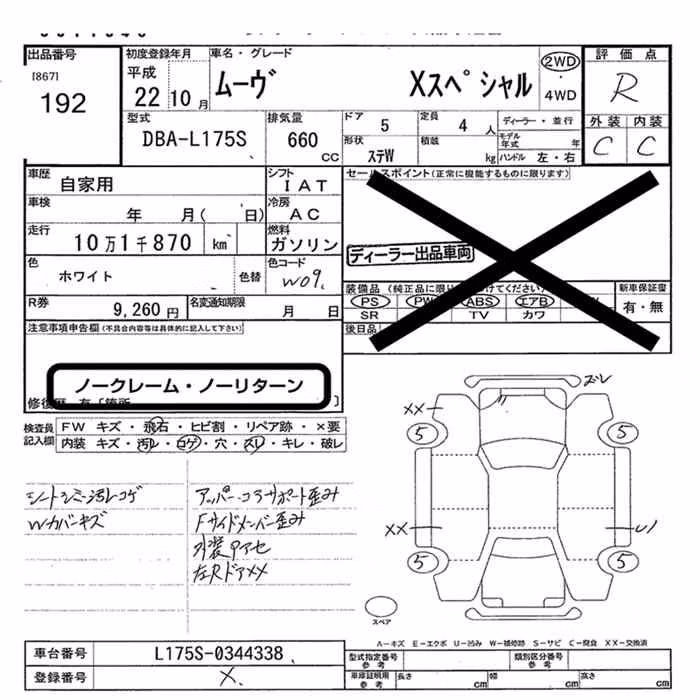 出品番号
[867]
192
初度登録年月
平成
22 10 月
車名・グレード
ムーヴ Xスペシャル
2WD
・
4WD
評価点
R
外装 内装
C C
型式
DBA-L175S
排気量
660
CC
ドア
5
定員
4 人
形状
ステW
積載
kg
ディーラー・並行
モデル年式 年
ハンドル 左・右
車歴
自家用
シフト
IAT
車検
年 月( 日)
冷房
AC
走行
10万1千870 km
燃料
ガソリン
色
ホワイト
色替
色コード
W09
R券
9,260 円
名変通知期限
月 日
注意事項申告欄(不具合内容等は具体的に記入して下さい)
ノークレーム・ノーリターン
修復歴 有 [箇所 ]
セールスポイント(正常に機能するものに限ります)
ディーラー出品車両
装備品(純正品に限り 付けてください)
新車保証書
PS PW ABS エアB W
SR TV カワ
有・無
後日品
検査員記入欄
FW キズ・飛石・ヒビ割・リペア跡・×要
内装 キズ・汚レ・コゲ・穴・スレ・キレ・破レ
シートシミ汚レコゲ
Wカバーキズ
アッパー・コラサポート歪み
Fサイドメンバー歪み
外装色アセ
左RドアXX
ズレ
XX
5 5
XX
5 5
スペア
A-キズ E-エクボ U-凹み W-補修跡 S-サビ C-腐食 XX-交換済
車台番号
L175S-0344338
登録番号
X
型式指定番号
参考
類別区分番号
参考
車庫証明用
参考
長さ cm
幅 cm
高さ cm